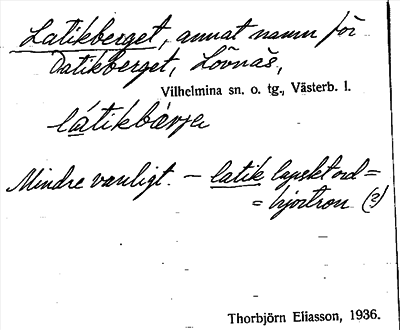 Latikberget, annat namn för
Datikberget, Lövnäs,
Vilhelmina sn. o. tg., Västerb. l.
látikbärje
Mindre vanligt. – latik lapskt ord =
= hjortron (?)
Thorbjörn Eliasson, 1936.